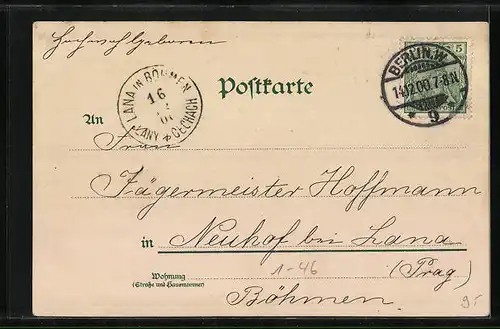 Hochwohlgeboren
Postkarte
BERLIN.W.
5
14.12.00.7-8N
* 9
LANA IN BÖHMEN
16
LANY V ČECHÁCH
An
Frau
Jägermeister Hoffmann
in Neuhof bei Lana
Wohnung
(Straße und Hausnummer)
1-46
(Prag)
Böhmen.
95